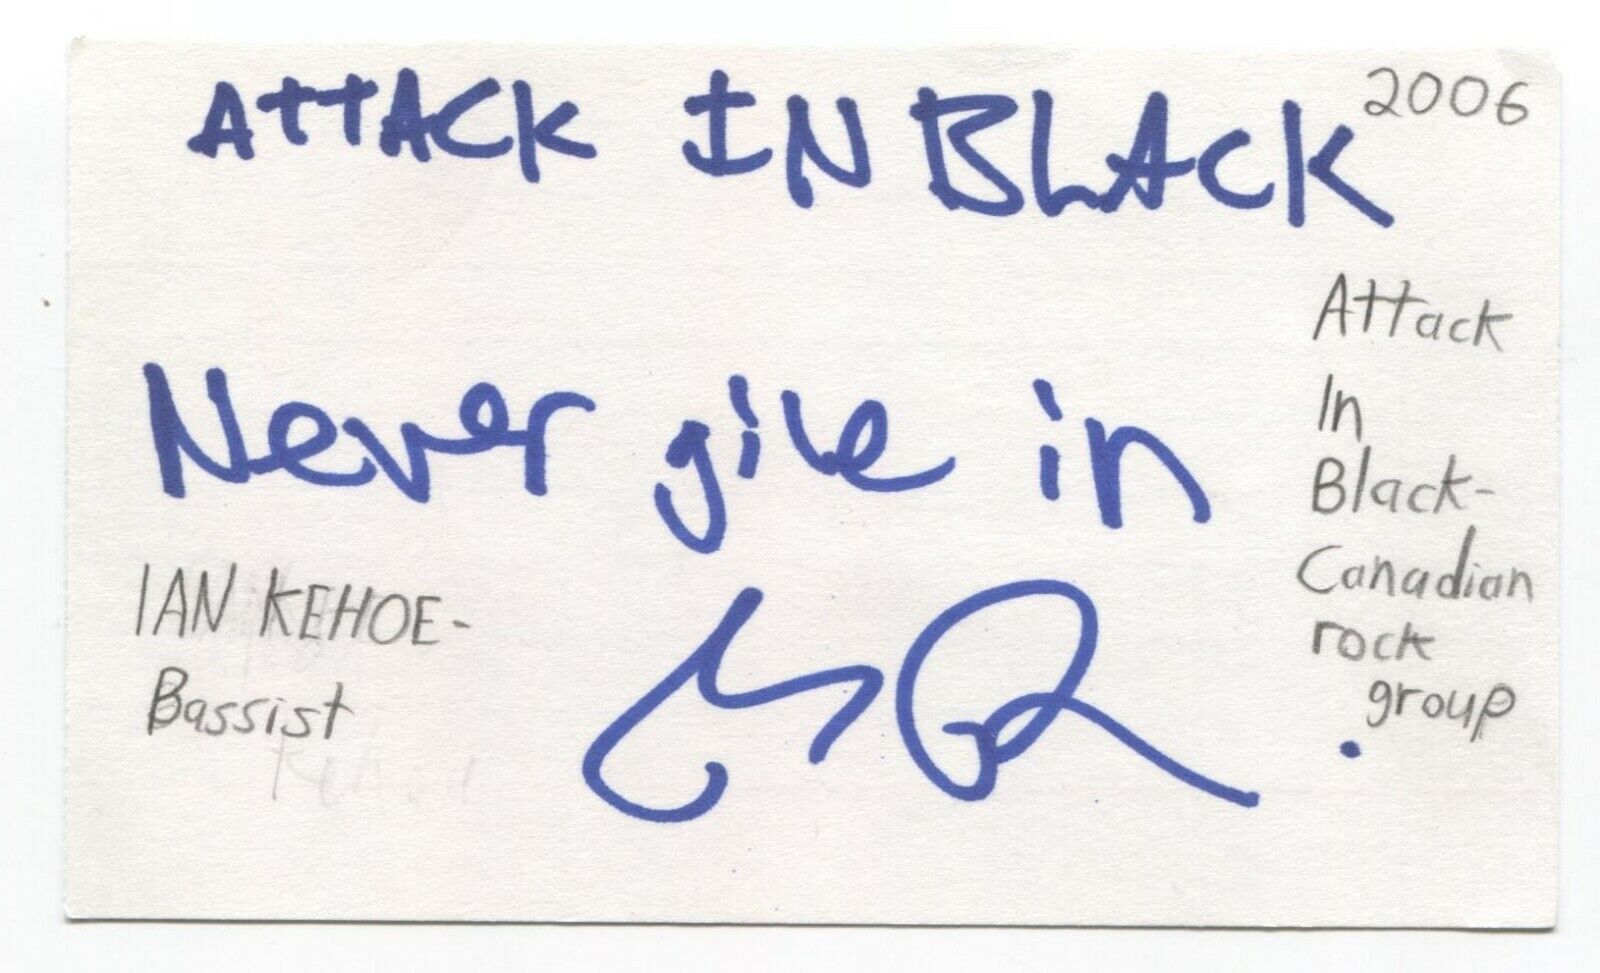 ATTACK IN BLACK
2006
Never give in
Attack
In
Black-
Canadian
rock
group
IAN KEHOE-
Bassist